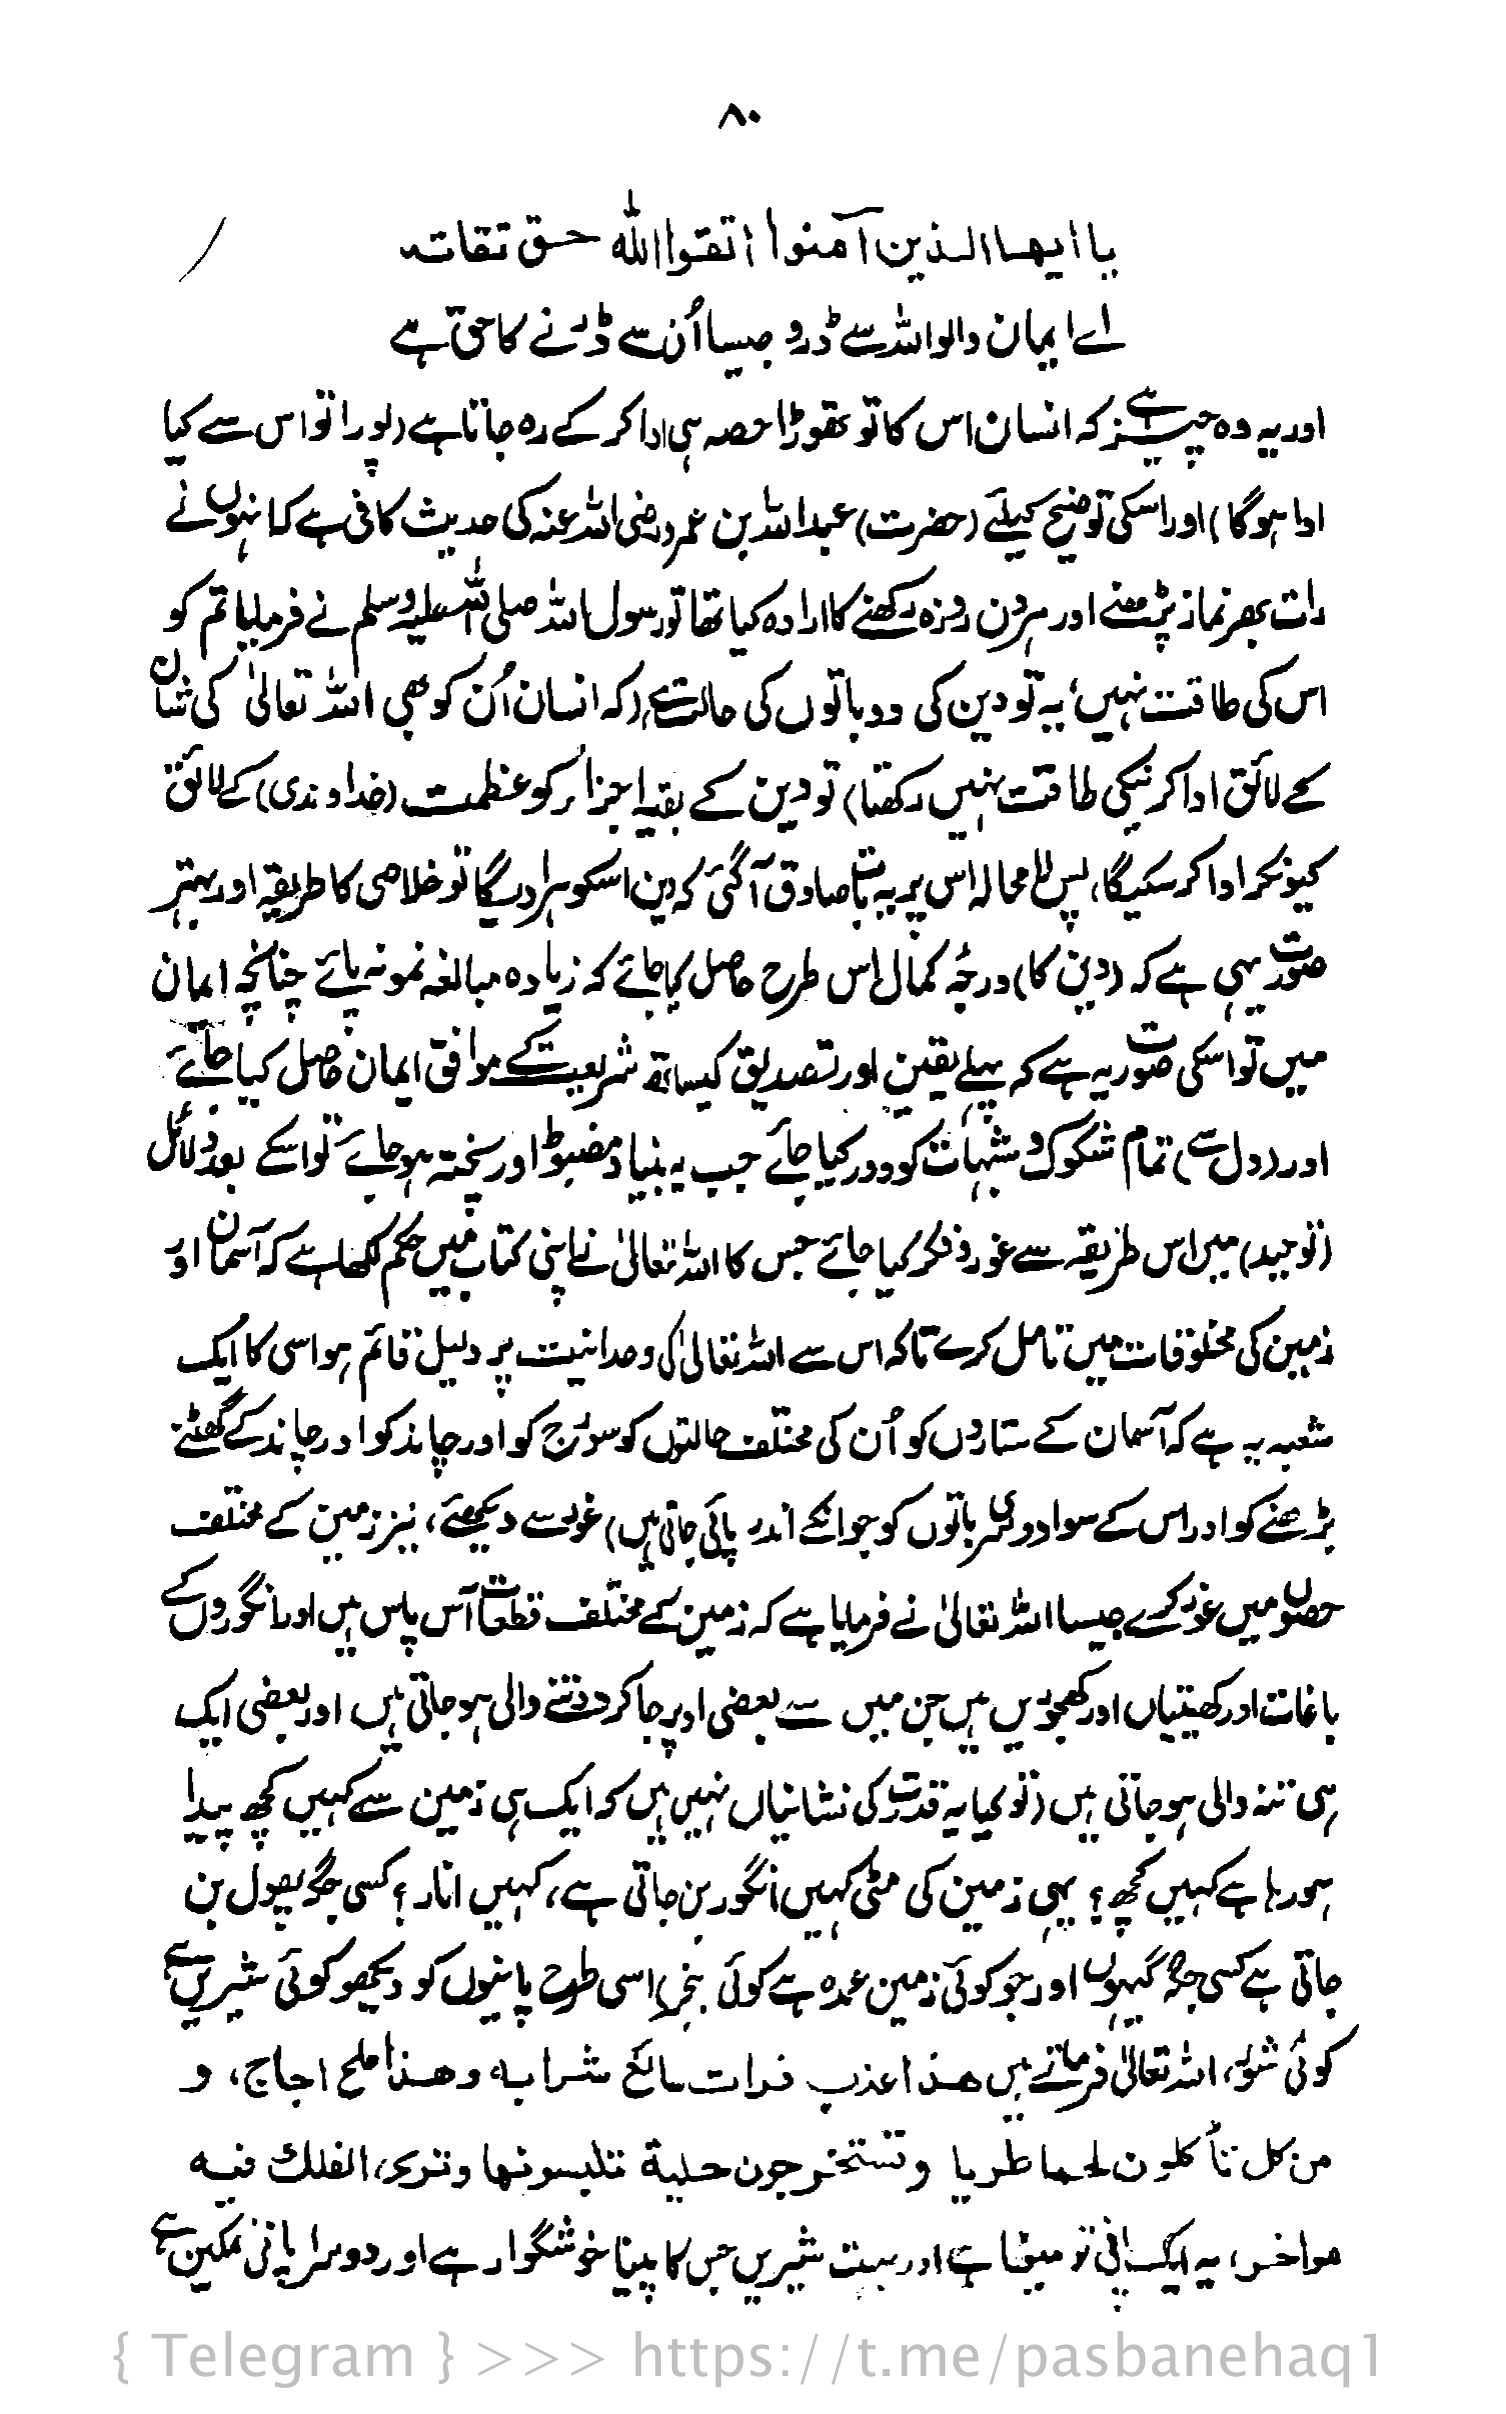 ۸۰
یا ایها الذین آمنوا اتقوا الله حق تقاته
اے ایمان والو اللہ سے ڈرو جیسا اُن سے ڈرنے کا حق ہے
اور یہ وہ چیز ہے کہ انسان اس کا تو تھوڑا حصہ ہی ادا کر کے رہ جاتا ہے (پورا تو اس سے کیا
ادا ہوگا) اور اسکی توضیح کیلئے (حضرت) عبداللہ بن عمر و رضی اللہ عنہ کی حدیث کافی ہے کہ انہوں نے
رات بھر نماز پڑھنے اور ہر دن روزہ رکھنے کا ارادہ کیا تھا تو رسول اللہ صلی اللہ علیہ وسلم نے فرمایا تم کو
اس کی طاقت نہیں، یہ تو دین کی دو باتوں کی حالت ہے، (کہ انسان اُن کو بھی اللہ تعالیٰ کی شان
کے لائق ادا کرنیکی طاقت نہیں رکھتا) تو دین کے بقیہ اجزار کو عظمت (خداوندی) کے لائق
کیونکر ادا کر سکیگا، پس لا محالہ اس پر یہ بات صادق آگئی کہ دین اسکو ہرا دیگا تو خلاصی کا طریقہ اور بہتر
صورت یہی ہے کہ (دین کا) درجۂ کمال اس طرح حاصل کیا جائے کہ زیادہ مبالغہ نمونہ پائے چنانچہ ایمان
میں تو اسکی صورت یہ ہے کہ پہلے یقین اور تصدیق کیساتھ شریعت کے موافق ایمان حاصل کیا جائے
اور (دل سے) تمام شکوک و شبہات کو دور کیا جائے جب یہ بنیاد مضبوط اور پختہ ہو جائے تو اسکے بعد دلائل
(توحید) میں اس طریقہ سے غور و فکر کیا جائے جس کا اللہ تعالیٰ نے اپنی کتاب میں حکم لکھا ہے کہ آسمان اور
زمین کی مخلوقات میں تامل کرے تاکہ اس سے اللہ تعالیٰ کی وحدانیت پر دلیل قائم ہو اسی کا ایک
شعبہ یہ ہے کہ آسمان کے ستاروں کو اُن کی مختلف حالتوں کو سورج کو اور چاند کو اور چاند کے گھٹنے
بڑھنے کو اور اس کے سوا دوسری باتوں کو جو انکے اندر پائی جاتی ہیں) غور سے دیکھئے، نیز زمین کے مختلف
حصوں میں غور کرے جیسا اللہ تعالیٰ نے فرمایا ہے کہ زمین کے مختلف قطعات آس پاس ہیں اور انگوروں کے
باغات اور کھیتیاں اور کھجوریں ہیں جن میں سے بعضی اوپر جا کر دو تنے والی ہو جاتی ہیں اور بعضی ایک
ہی تنہ والی ہو جاتی ہیں (تو کیا یہ قدرت کی نشانیاں نہیں ہیں کہ ایک ہی زمین سے کہیں کچھ پیدا
ہو رہا ہے کہیں کچھ؟ یہی زمین کی مٹی کہیں انگور بن جاتی ہے، کہیں انار؟ کسی جگہ پھول بن
جاتی ہے کسی جگہ گیہوں اور جو کوئی زمین عمدہ ہے کوئی بنجر) اسی طرح پانیوں کو دیکھو کوئی شیریں ہے
کوئی شور، اللہ تعالیٰ فرماتے ہیں هذا عذب فرات سائغ شرابه وهذا ملح اجاج، و
من كل تأكلون لحما طريا وتستخرجون حلية تلبسونها وترى الفلك فيه
مواخر، یہ ایک پانی تو میٹھا ہے اور بہت شیریں جس کا پینا خوشگوار ہے اور دوسرا پانی نمکین ہے
{ Telegram } >>> https://t.me/pasbanehaq1